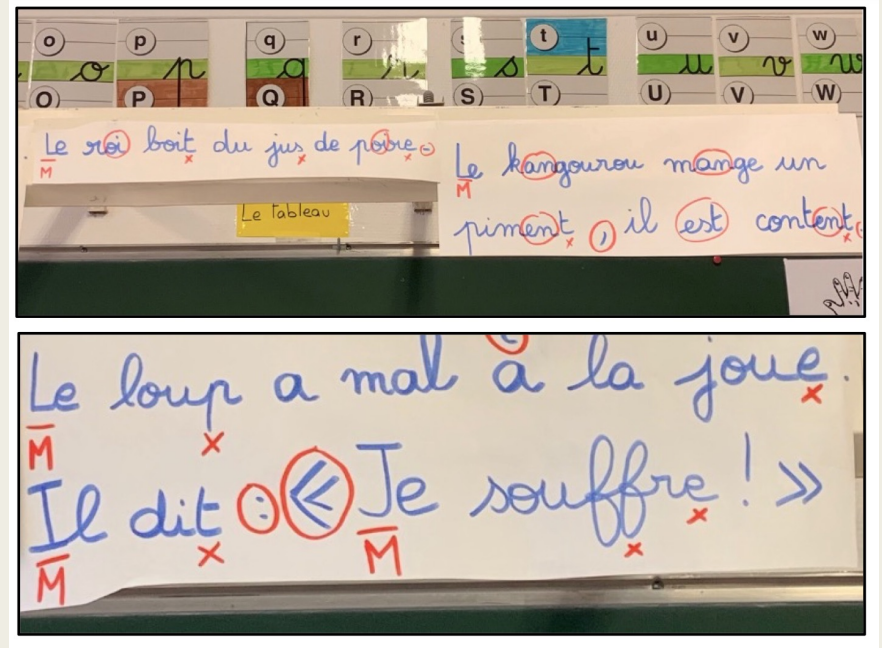 o p q r s t u v w
o p q r s t u v w
O P Q R S T U V W
Le roi boit du jus de poire.
M
Le Tableau
Le kangourou mange un
M
piment, il est content.
Le loup a mal à la joue.
M
Il dit : « Je souffre ! »
M M